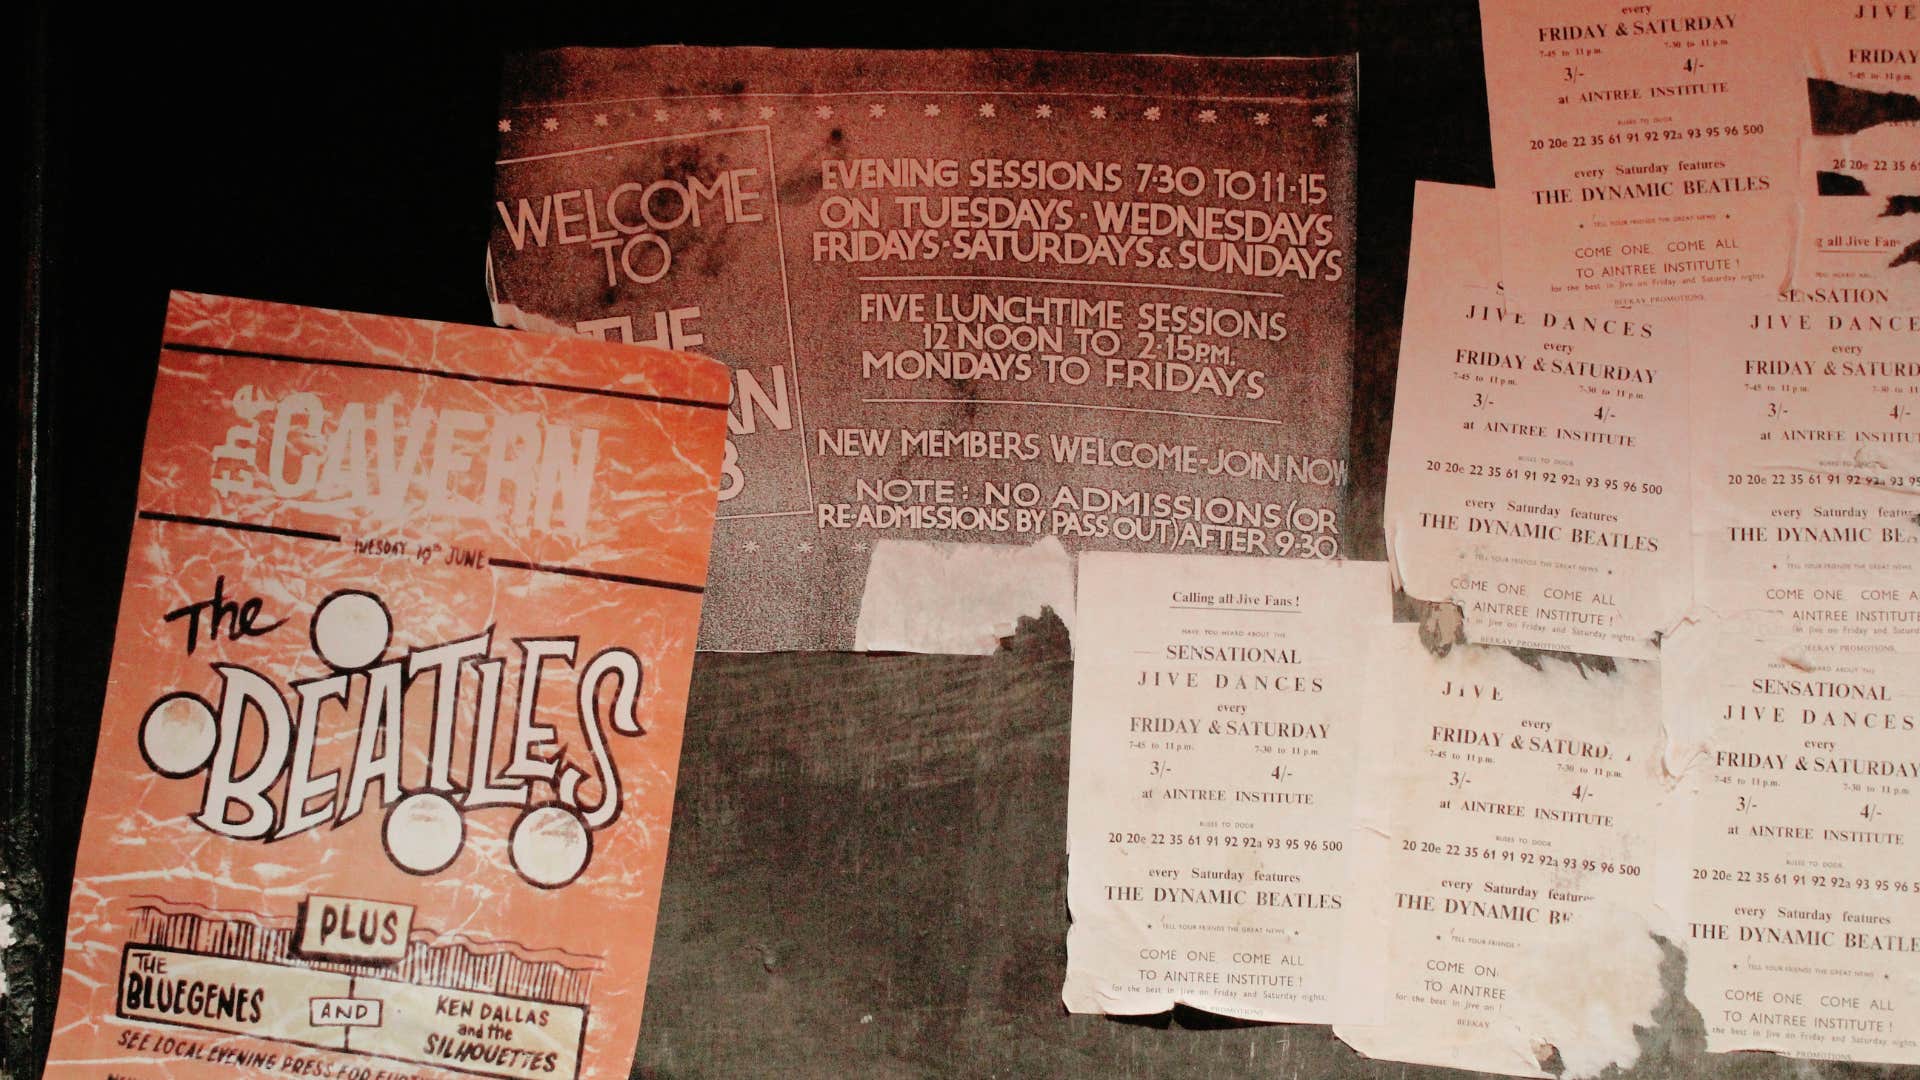 the CAVERN
TUESDAY 19th JUNE
The
BEATLES
PLUS
THE
BLUEGENES
AND
KEN DALLAS
and the
SILHOUETTES
SEE LOCAL EVENING PRESS FOR
WELCOME
TO
THE
RN
B
EVENING SESSIONS 7·30 TO 11·15
ON TUESDAYS · WEDNESDAYS
FRIDAYS · SATURDAYS & SUNDAYS
FIVE LUNCHTIME SESSIONS
12 NOON TO 2·15PM.
MONDAYS TO FRIDAYS
NEW MEMBERS WELCOME-JOIN NOW
NOTE: NO ADMISSIONS (OR
RE-ADMISSIONS BY PASS OUT) AFTER 9·30
every
FRIDAY & SATURDAY
7-45 to 11 p.m. 7-30 to 11 p.m.
3/- 4/-
at AINTREE INSTITUTE
BUSES TO DOOR
20 20e 22 35 61 91 92 92a 93 95 96 500
every Saturday features
THE DYNAMIC BEATLES
★ TELL YOUR FRIENDS THE GREAT NEWS ★
COME ONE, COME ALL
TO AINTREE INSTITUTE !
for the best in Jive on Friday and Saturday nights.
BEEKAY PROMOTIONS.
JIVE
FRIDAY
7-45 to 11 p.m.
20 20e 22 35
g all Jive Fans
SENSATION
JIVE DANCE
every
FRIDAY & SATURD
7-45 to 11 p.m. 7-30 to 11
3/- 4/-
at AINTREE INSTITU
BUSES TO DOOR
20 20e 22 35 61 91 92 92a 93 95
every Saturday featu
THE DYNAMIC BE
★ TELL YOUR FRIENDS THE GREAT NEWS
COME ONE, COME A
AINTREE INSTITUTE
in Jive on Friday and Saturd
BEEKAY PROMOTIONS.
S
JIVE DANCES
every
FRIDAY & SATURDAY
7-45 to 11 p.m. 7-30 to 11 p.m.
3/- 4/-
at AINTREE INSTITUTE
BUSES TO DOOR
20 20e 22 35 61 91 92 92a 93 95 96 500
every Saturday features
THE DYNAMIC BEATLES
★ TELL YOUR FRIENDS THE GREAT NEWS ★
COME ONE, COME ALL
TO AINTREE INSTITUTE !
in Jive on Friday and Saturday nights.
BEEKAY PROMOTIONS
Calling all Jive Fans !
HAVE YOU HEARD ABOUT THE
SENSATIONAL
JIVE DANCES
every
FRIDAY & SATURDAY
7-45 to 11 p.m. 7-30 to 11 p.m.
3/- 4/-
at AINTREE INSTITUTE
BUSES TO DOOR
20 20e 22 35 61 91 92 92a 93 95 96 500
every Saturday features
THE DYNAMIC BEATLES
★ TELL YOUR FRIENDS THE GREAT NEWS ★
COME ONE, COME ALL
TO AINTREE INSTITUTE !
for the best in Jive on Friday and Saturday nights.
PROMOTIONS
JIVE
every
FRIDAY & SATURD
7-45 to 11 p.m. 7-30 to 11 p.m.
3/- 4/-
at AINTREE INSTITUTE
BUSES TO DOOR
20 20e 22 35 61 91 92 92a 93 95 96 500
every Saturday features
THE DYNAMIC BE
★ TELL YOUR FRIENDS
COME ON
TO AINTREE
for the best in Jive on
BEEKAY
HAVE HEARD ABOUT THE
SENSATIONAL
JIVE DANCES
every
FRIDAY & SATURDAY
7-45 to 11 p.m. 7-30 to 11 p.m.
3/- 4/-
at AINTREE INSTITUTE
BUSES TO DOOR
20 20e 22 35 61 91 92 92a 93 95 96 5
every Saturday features
THE DYNAMIC BEATLE
★ TELL YOUR FRIENDS THE GREAT NEWS ★
COME ONE, COME ALL
TO AINTREE INSTITUTE !
the best in Jive on Friday and Saturday nights.
PROMOTIONS